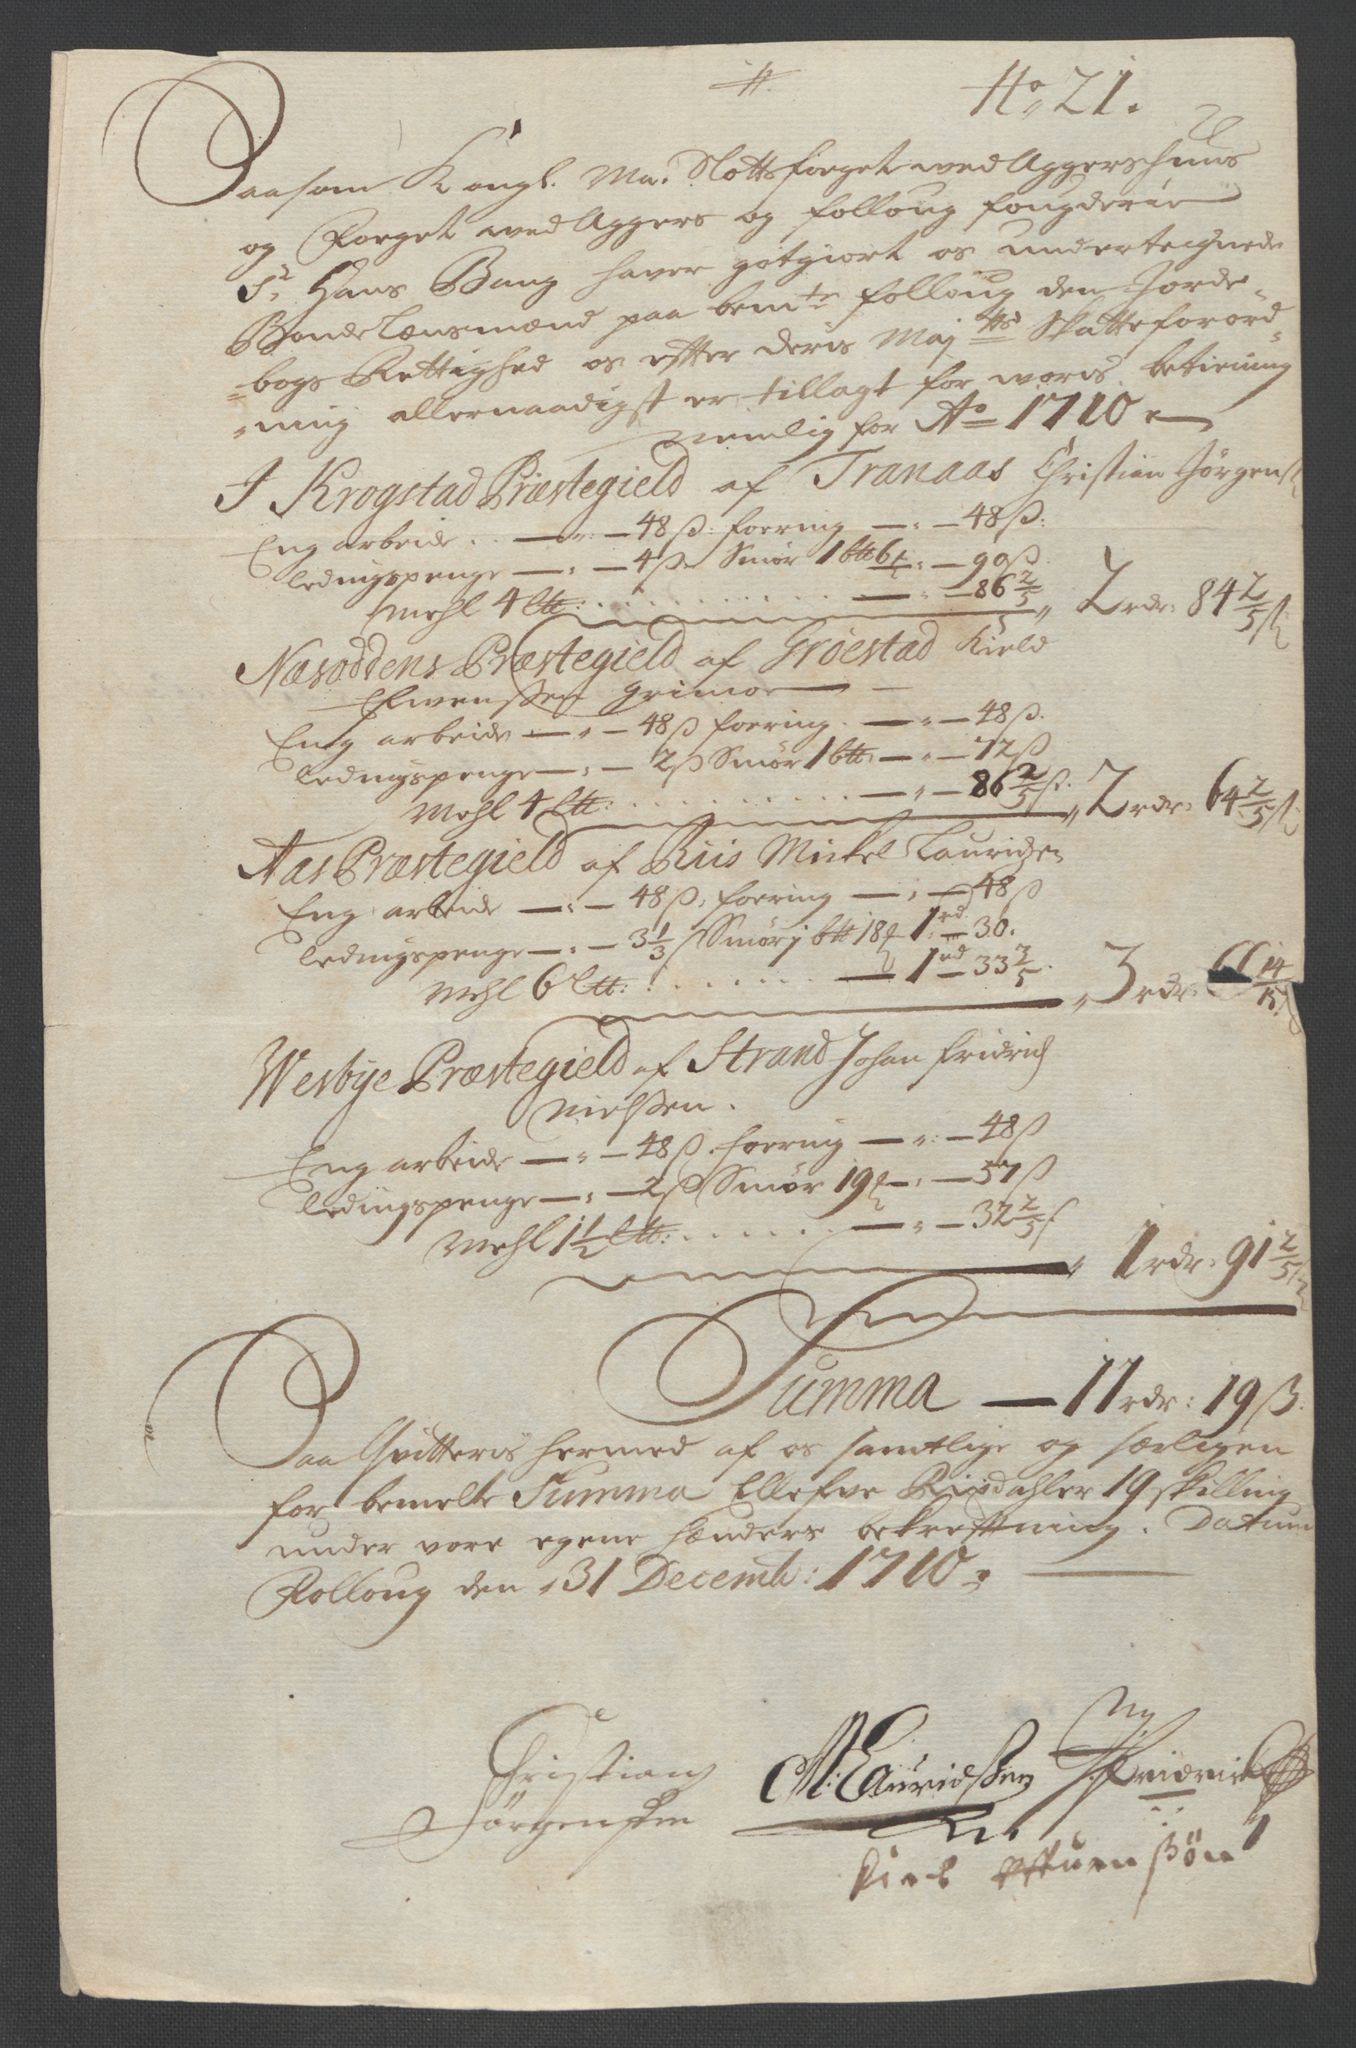 No 21.
Saasom Kongl. Ma. Slottsfoeget ved Aggerschuus
og Foeget ved Aggers og Folloug fougderie
Sr. Hans Bang haver gotgiort os undertegnede
Bonde Lænsmænd paa bemte Folloug den Jorde-
bogs Rettighed os efter deris Majtts Skatteforord-
ning allernaadigst er tillagt for woris betiening
nemlig for Ao 1710
J Krogstad Præstegield af Tranaas Christian Jørgens
Eng arbeide .. — " — 48 ß: foering — " — 48 ß:
Ledingspenge — " — 4 ß Smør 1 btt 6 — 90 ß
Mehl 4 ltt: — " — 86 2/5 " 2 rdr: 84 2/5 ß
Næsoddens Præstegield af Froestad Kield
Efwensßen Grimoe
Eng arbeide — " — 48 ß foering. — " — 48 ß.
Ledingspenge — " — 2 ß Smør 1 btt: — " — 72 ß
Mehl 4 ltt: — " — 86 2/5 ß. " 2 rdr: 64 2/5 ß
Aas Præstegield af Riis Mickel Lauridzen
Eng arbeide — " — 48 ß, foering — " — 48 ß
Ledingspenge — " — 3 1/3 ß Smør j btt 18 1 rd — 30.
Mehl 6 ltt: — 1 rd — 33 2/5. " 3 rdr: 66 14/15
Wesbye Præstegield af Strand Johan Fridrich
Nielsßen.
Eng arbeide — " — 48 ß. foering — " — 48 ß
Ledingspenge — " — 2 ß Smør 19 — " — 57 ß
Mehl 1 1/2 ltt: — " — 32 2/5 ß
" 1 rdr: 91 2/5 ß
Summa — 11 rdr: 19 ß:
Saa Qvitteris hermed af os samtlige og særligen
for bemelte Summa Ellefve Rixdahler 19 skilling
under vore egene hænders bekreftning. Datum
Folloug den 31 Decemb: 1710
Christian
Jørgensßen
M: Lauridsßen
J: Fridrich
Kield